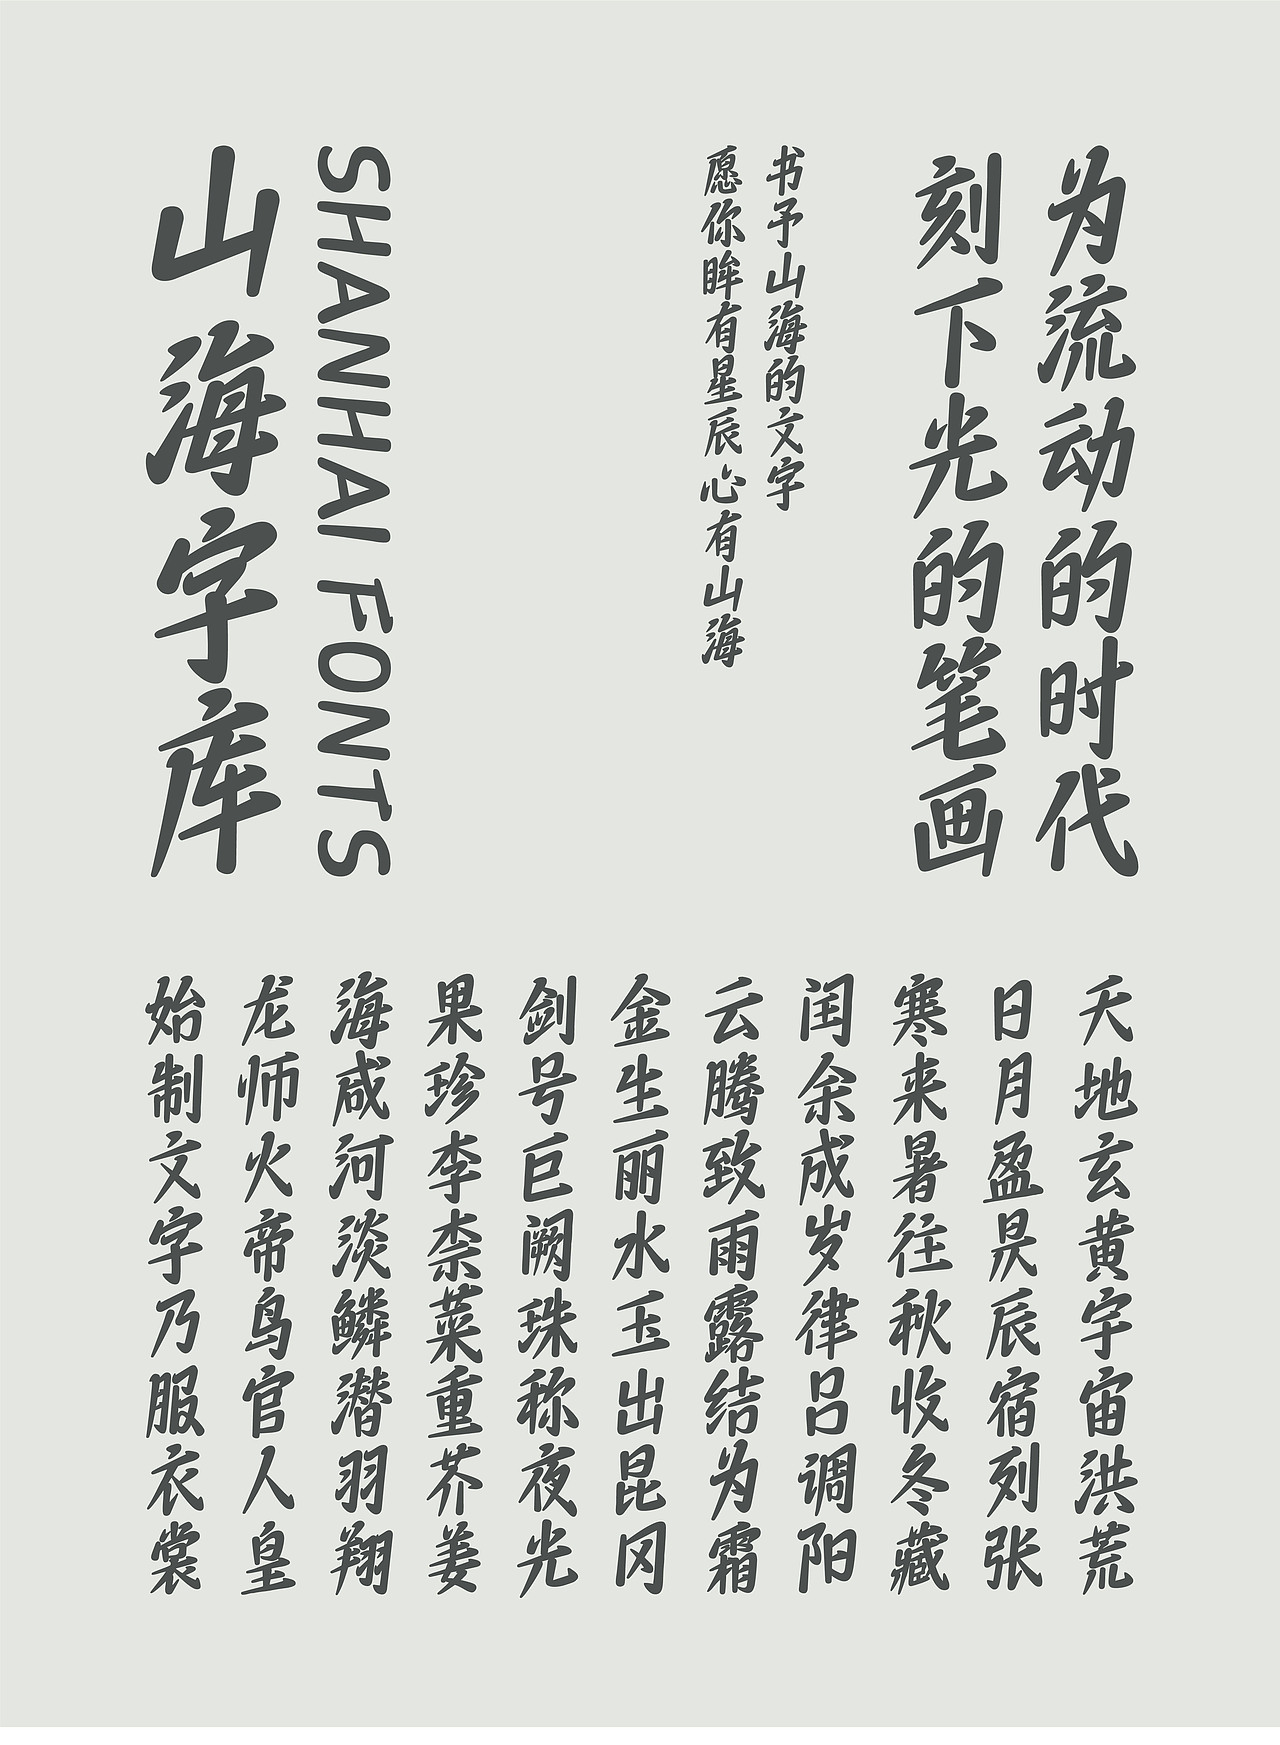 为流动的时代
刻下光的笔画
书予山海的文字
愿你眸有星辰心有山海
SHANHAI FONTS
山海字库
天地玄黄宇宙洪荒
日月盈昃辰宿列张
寒来暑往秋收冬藏
闰余成岁律吕调阳
云腾致雨露结为霜
金生丽水玉出昆冈
剑号巨阙珠称夜光
果珍李柰菜重芥姜
海咸河淡鳞潜羽翔
龙师火帝鸟官人皇
始制文字乃服衣裳